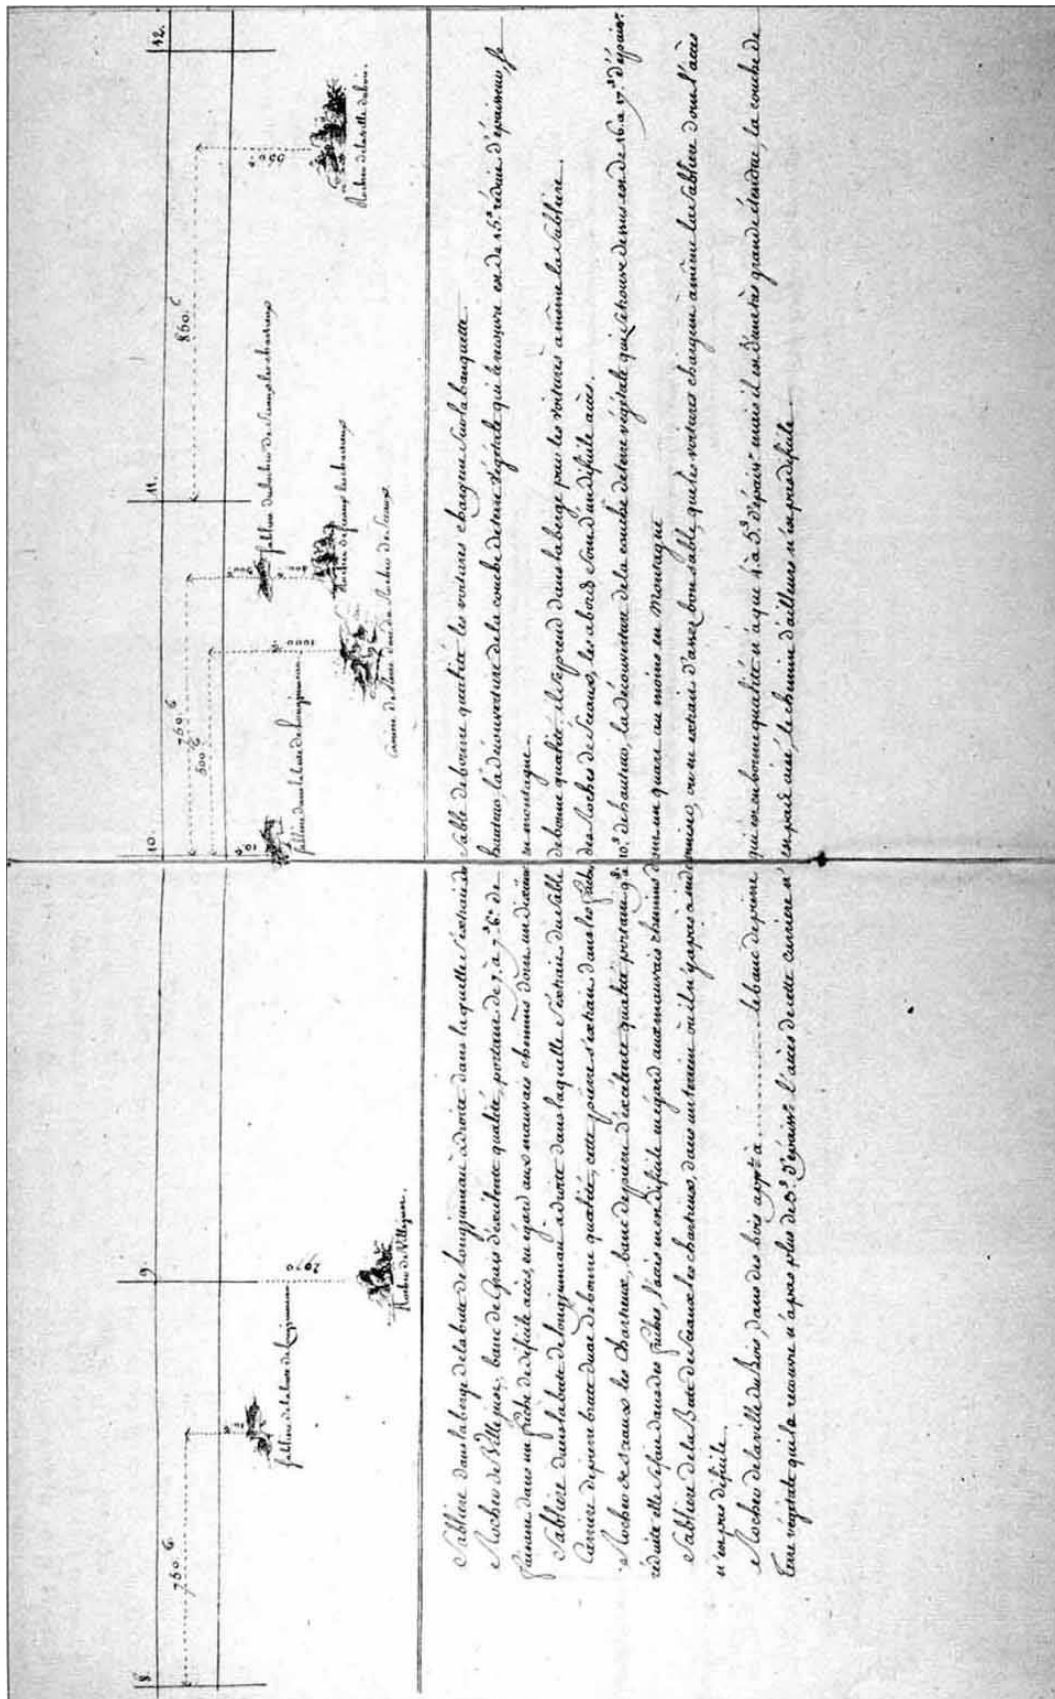 8.
9.
10.
11.
12.
760. t
760. t
500. t
860. t
10 t
1000
2070
Sablière de la bute de Longjumeau
Rocher de Villejuer
Sablière dans la bute de Longjumeau
Carrière de Pierre dure des Roches de Sceaux
Rocher de Sceaux les chartreux
Sablière de la bute de Sceaux les chartreux
Rocher de la ville du bois.
Sablière dans la berge de la bute de Longjumeau à droite dans laquelle s'extrait du Sable de bonne qualité les voitures chargent sur la banquette.
Rocher de Villejuer, banc de Grais d'excélente qualité, portant de 7. a 7. 6. de hauteur, la découverture de la couche de terre végétale qui le recouvre est de 15. réduit d'épaisseur, se
faisant dans un friche de dificile accès, eu égard aux mauvais chemins dont un dixième en montagne.
Sablière dans la bute de Longjumeau à droite dans laquelle s'extrait du Sable de bonne qualité il se prend dans la berge par les voitures a même la Sablière.
Carrière de pierre brute dure de bonne qualité, cette pierre s'extrait dans les friches des Roches de Sceaux, les abords sont d'un dificile accès.
Rocher de Sceaux les Chartreux, banc de pierre d'excélente qualité portant 9. à 10. de hauteur, la découverture de la couche de terre végétale qui se trouve dessus est de 16. a 17. d'épaisr.
réduite elle se fait dans des friches, l'accès en est dificile eu égard aux mauvais chemins dont un quart au moins en Montagne
Sablière de la Bute de Sceaux les chartreux, dans un terrein où il n'y a pas à indemniser, on en extrait d'assez bon sable, que les voitures chargent à même la Sablière dont l'accès
n'est pas dificile.
Rocher de la ville du Bois, dans des bois appt. à .......... le banc de pierre qui est en bonne qualité n'a que 4. a 5. d'épaisr. mais il est d'une très grande étendue, la couche de
terre végétale qui la recouvre n'a pas plus de 5. d'épaisr. l'accès de cette carrière n'est pas aisé, le chemin d'ailleurs n'est pas dificile.